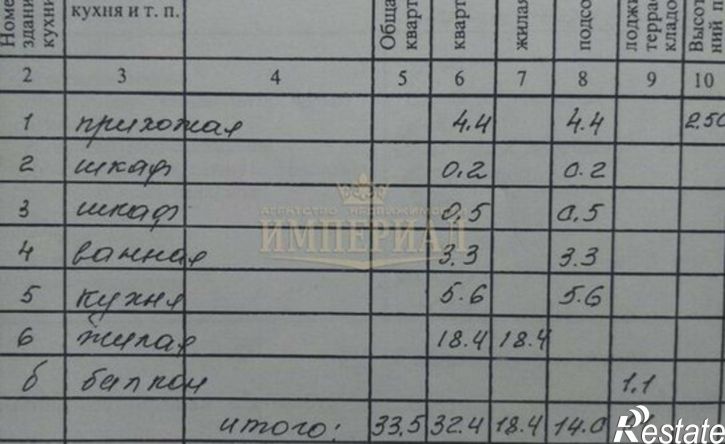 Номе
здани
кухни
кухня и т. п.
Обща
кварт
кварт
жилая
подсо
лоджи
террас
кладо
Высот
ний п
2 3 4 5 6 7 8 9 10
1 прихожая 4.4 4.4 2.50
2 шкаф 0.2 0.2
3 шкаф 0.5 0.5
АГЕНТСТВО НЕДВИЖИМОС
ИМПЕРИАЛ
4 ванная 3.3 3.3
5 кухня 5.6 5.6
6 жилая 18.4 18.4
б балкон 1.1
итого: 33.5 32.4 18.4 14.0
Restate